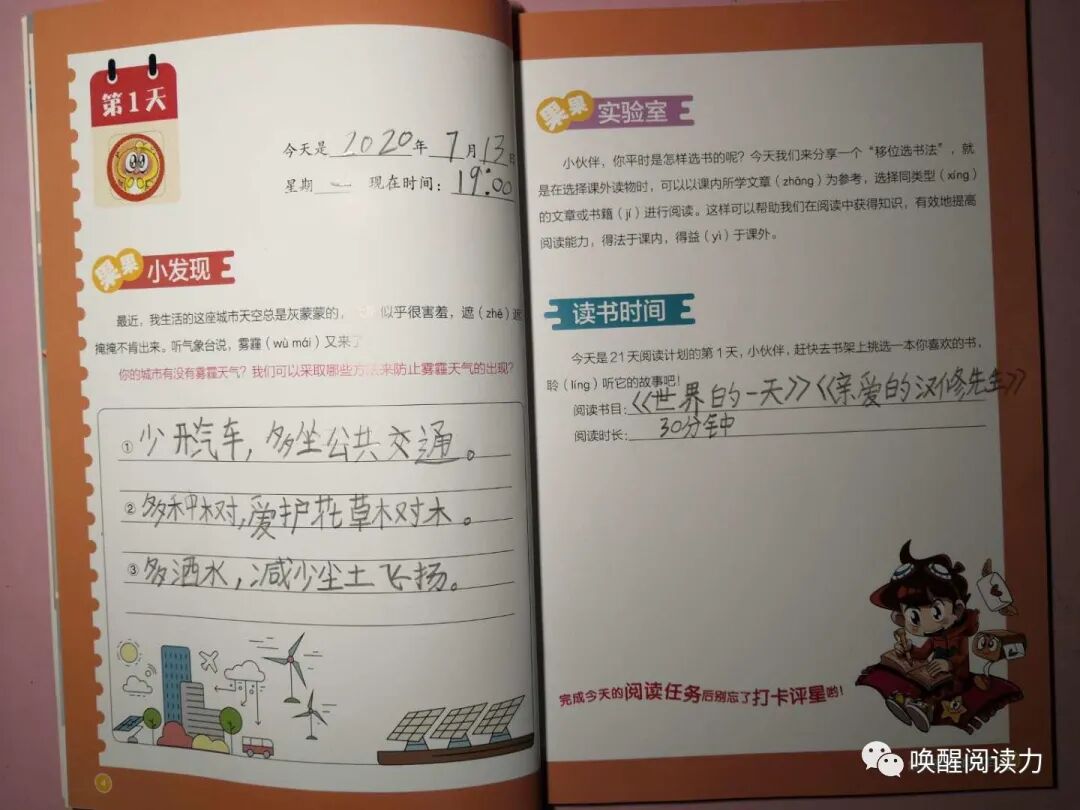 第1天
今天是2020年7月13日
星期一 现在时间：19:00
果果 小发现
最近，我生活的这座城市天空总是灰蒙蒙的，似乎很害羞，遮（zhē）遮
掩掩不肯出来。听气象台说，雾霾（wù mái）又来了
你的城市有没有雾霾天气？我们可以采取哪些方法来防止雾霾天气的出现？
①少开汽车，多坐公共交通。
②多种树，爱护花草树木。
③多洒水，减少尘土飞扬。
4
果果 实验室
小伙伴，你平时是怎样选书的呢？今天我们来分享一个“移位选书法”，就
是在选择课外读物时，可以以课内所学文章（zhāng）为参考，选择同类型（xíng）
的文章或书籍（jí）进行阅读。这样可以帮助我们在阅读中获得知识，有效地提高
阅读能力，得法于课内，得益（yì）于课外。
读书时间
今天是21天阅读计划的第1天，小伙伴，赶快去书架上挑选一本你喜欢的书，
聆（líng）听它的故事吧！
阅读书目：《世界的一天》《亲爱的汉修先生》
阅读时长：30分钟
完成今天的阅读任务后别忘了打卡评星哟！
唤醒阅读力